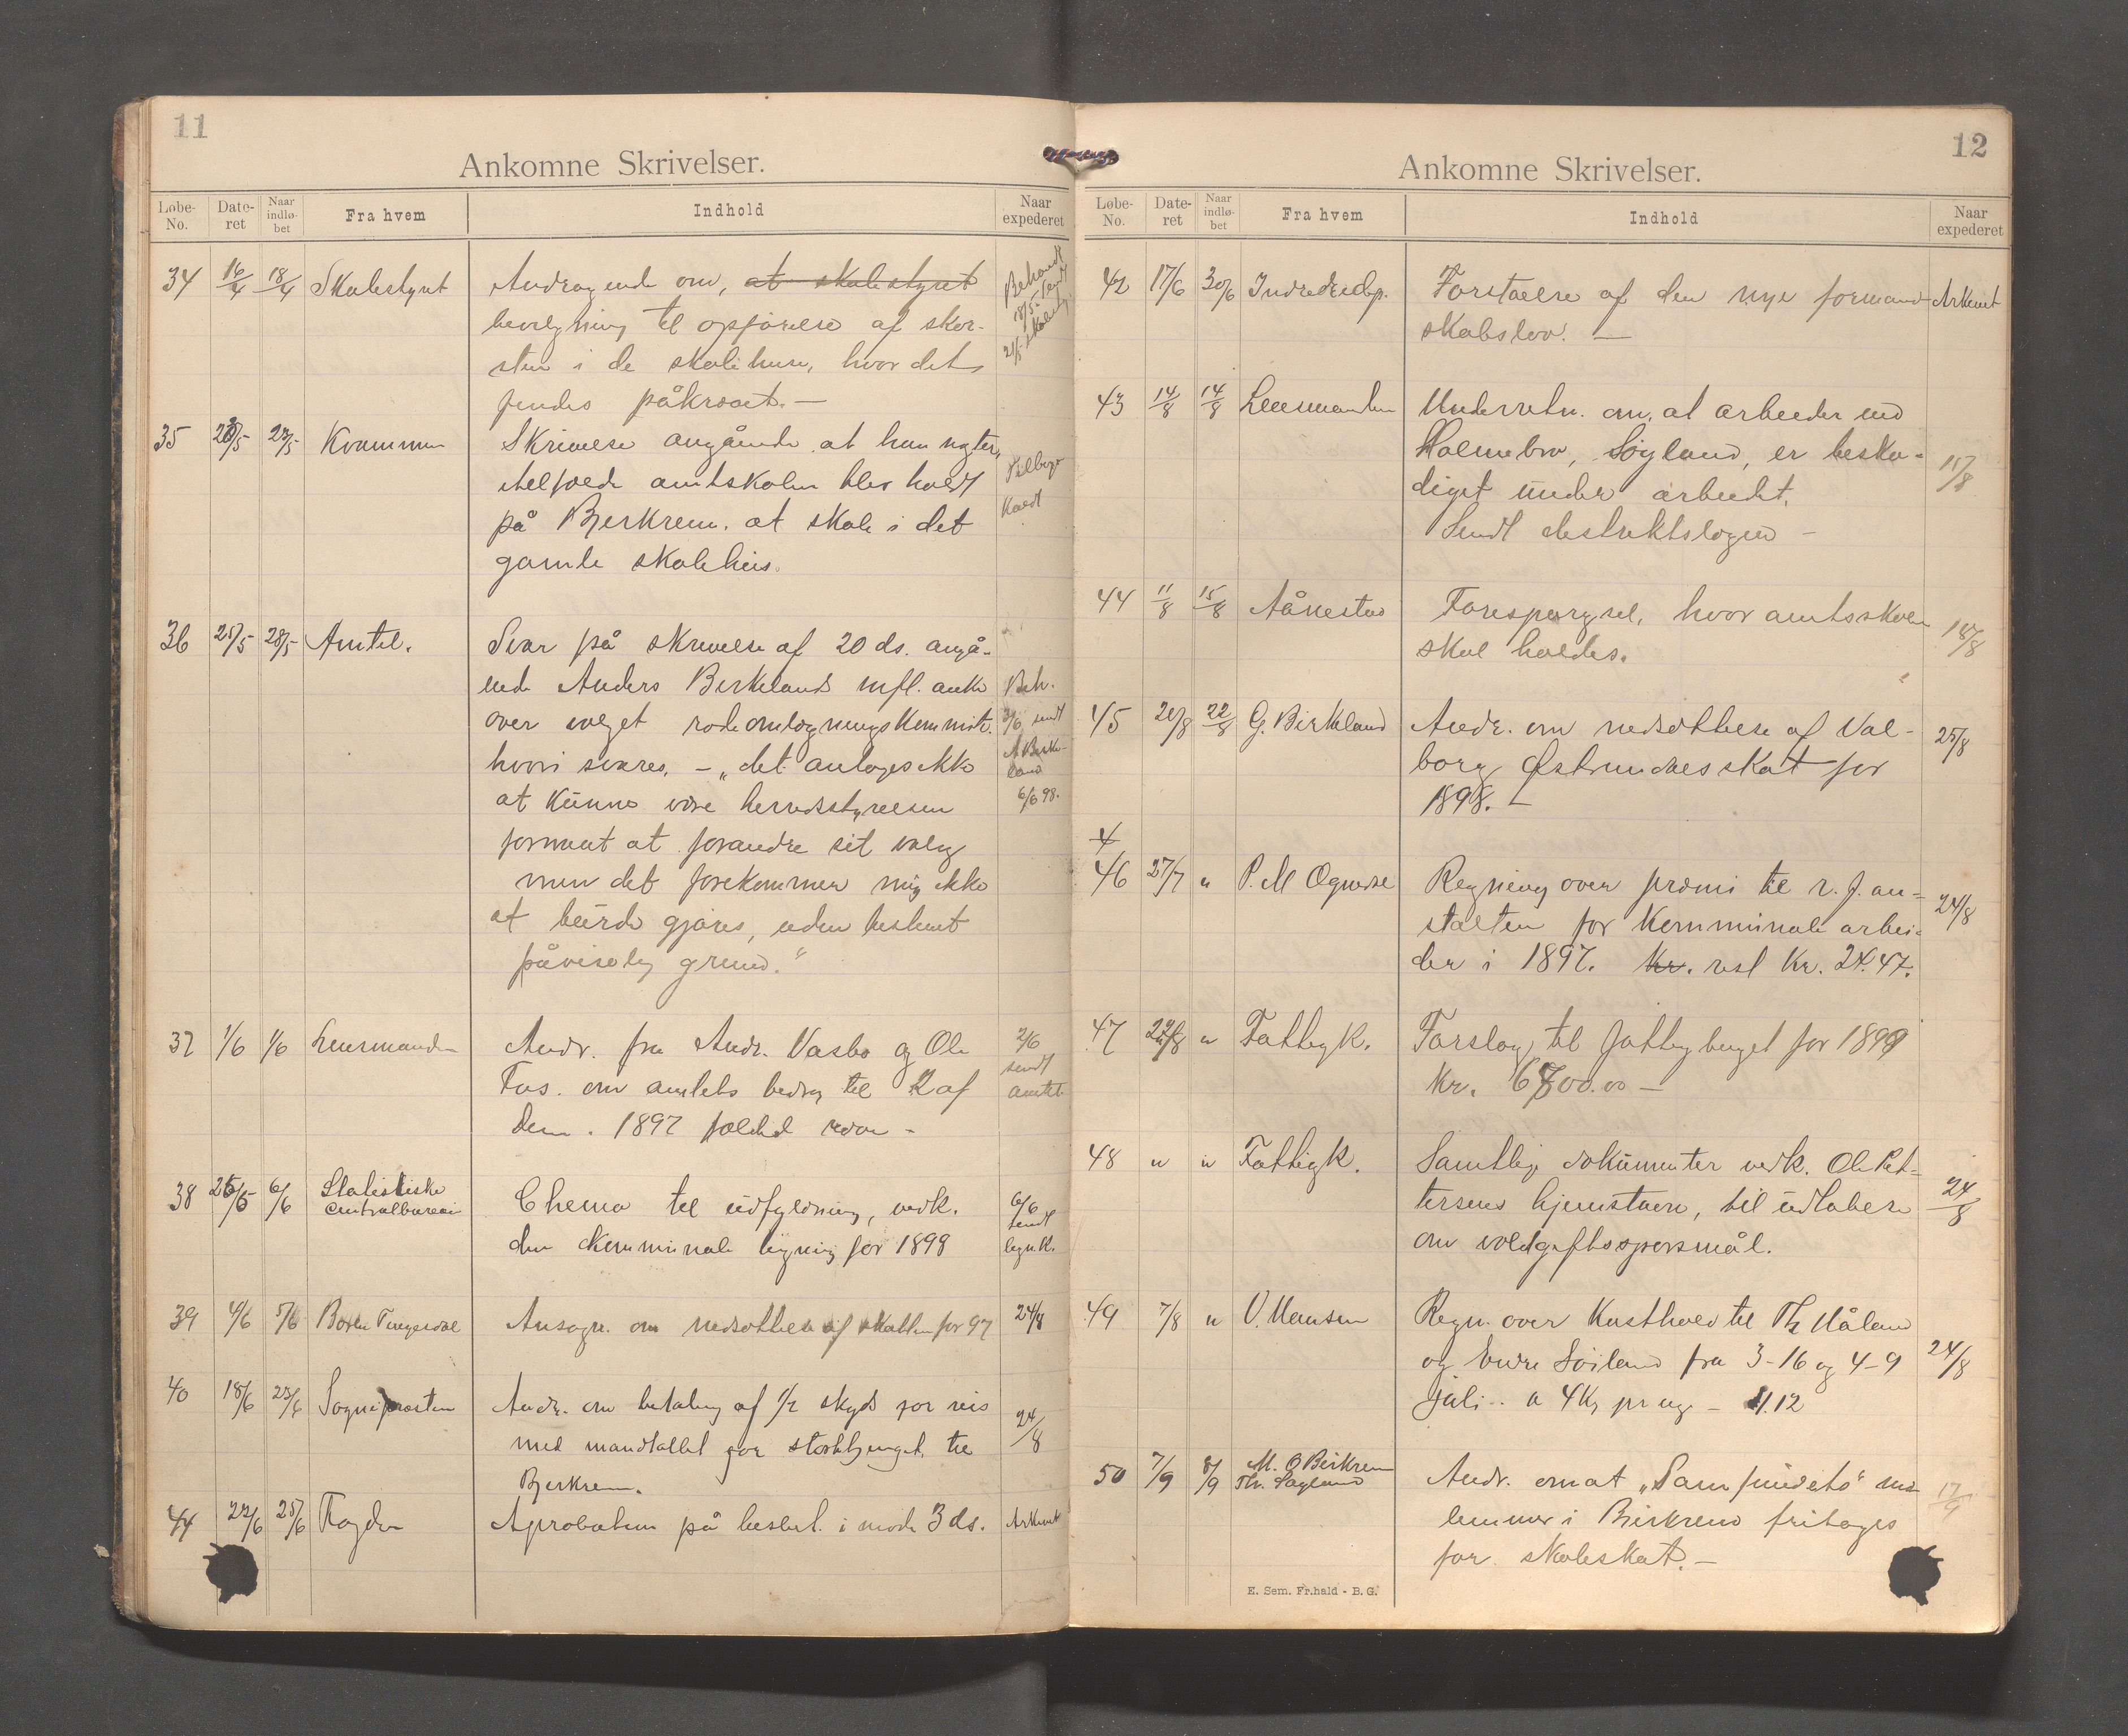 11
Ankomne Skrivelser.
Løbe-No. Date-ret Naar indlø-bet Fra hvem Indhold Naar expederet
34 16/4 18/4 Skolestyret Andragende om, at skolestyret Behandl
bevilgning til opførelse af skor- 18/5. sendt
sten i de skolehuse, hvor det 21/5 skolest.
findes påkrævet. —
35 20/5 23/5 Kvammen Skrivelse angående at han
amtskolen blev holdt Tilbage
på Berkrem. at skole i det kaldt
gamle skolehus.
36 25/5 28/5 Amtet. Svar på skrivelse af 20 ds. angå-
ende Anders Birkelands mfl. anke Beh.
over valget rodeomlægningskommite. 3/6 sendt
hvori svares. — „det antages ikke A. Birke-
at kunne være herredsstyrelsen land 6/6 98.
formeent at forandre sit valg
men det forekommer mig ikke
at burde gjøres, uden bestemt
påviselig grund."
37 1/6 1/6 Lensmanden Andr. fra Andr. Vasbø og Ole 2/6
Tos. om amtets bedrag til sendt
Dem. 1897 amtet
38 25/5 6/6 Statistiske Centralbureau Chema til udfyldning, vedk. 6/6 sendt
den kommunale ligning for 1898 lign k.
39 4/6 5/6 Ansøgn. om nedsættelse af skatten for 97 24/8
40 18/6 23/6 Sognepresten Andr. om betaling af 1/2 skyds for reis 24/8
med mandtallet for storthinget til
Berkrem.
41 22/6 25/6 Fogden Aprobation på beslut. i møde 3 ds. Arkivet
12
Ankomne Skrivelser.
Løbe-No. Date-ret Naar indlø-bet Fra hvem Indhold Naar expederet
42 17/6 30/6 Indredep. Forstaelse af den nye formand- Arkivet
skabslov. —
43 14/8 14/8 Lensmanden Underretn. om, at arbeider ved
Holmebro, Søyland, er beska- 15/8
diget under arbeidet.
Sendt destriktslægen —
44 11/8 15/8 Aånestad Forespørgsel, hvor amtsskolen 18/8
skal holdes.
45 20/8 22/8 G. Birkeland Andr. om nedsættelse af Val- 25/8
borg skat for
1898. —
4
46 27/7 " P. M Ognedal Regning over præmi til r. f. an- 24/8
stalten for kommunale arbei-
der i 1897. Kr. rest Kr. 24.47.
47 22/8 " Fattigk. Forslag til fattigbuget for 1899
Kr. 6700.00 —
48 " " Fattigk. Samtlige dokumenter vedk. Ole Pet-
tersens hjemstavn, til udtalelse 24/8
om voldgiftsspørsmål.
49 7/8 " O. Hansen Regn. over kosthold til Th Håland
og Endre Søiland fra 3-16 og 4-9 24/8
juli .. a 4 Kr pr uge — 11.12
50 7/9 8/9 M. O Birkrem
Th. Søyland Andr. om at „Samfundets" med- 17/9
lemmer i Birkrem fritages
for skoleskat. —
E. Sem. Fr.hald - B. G.